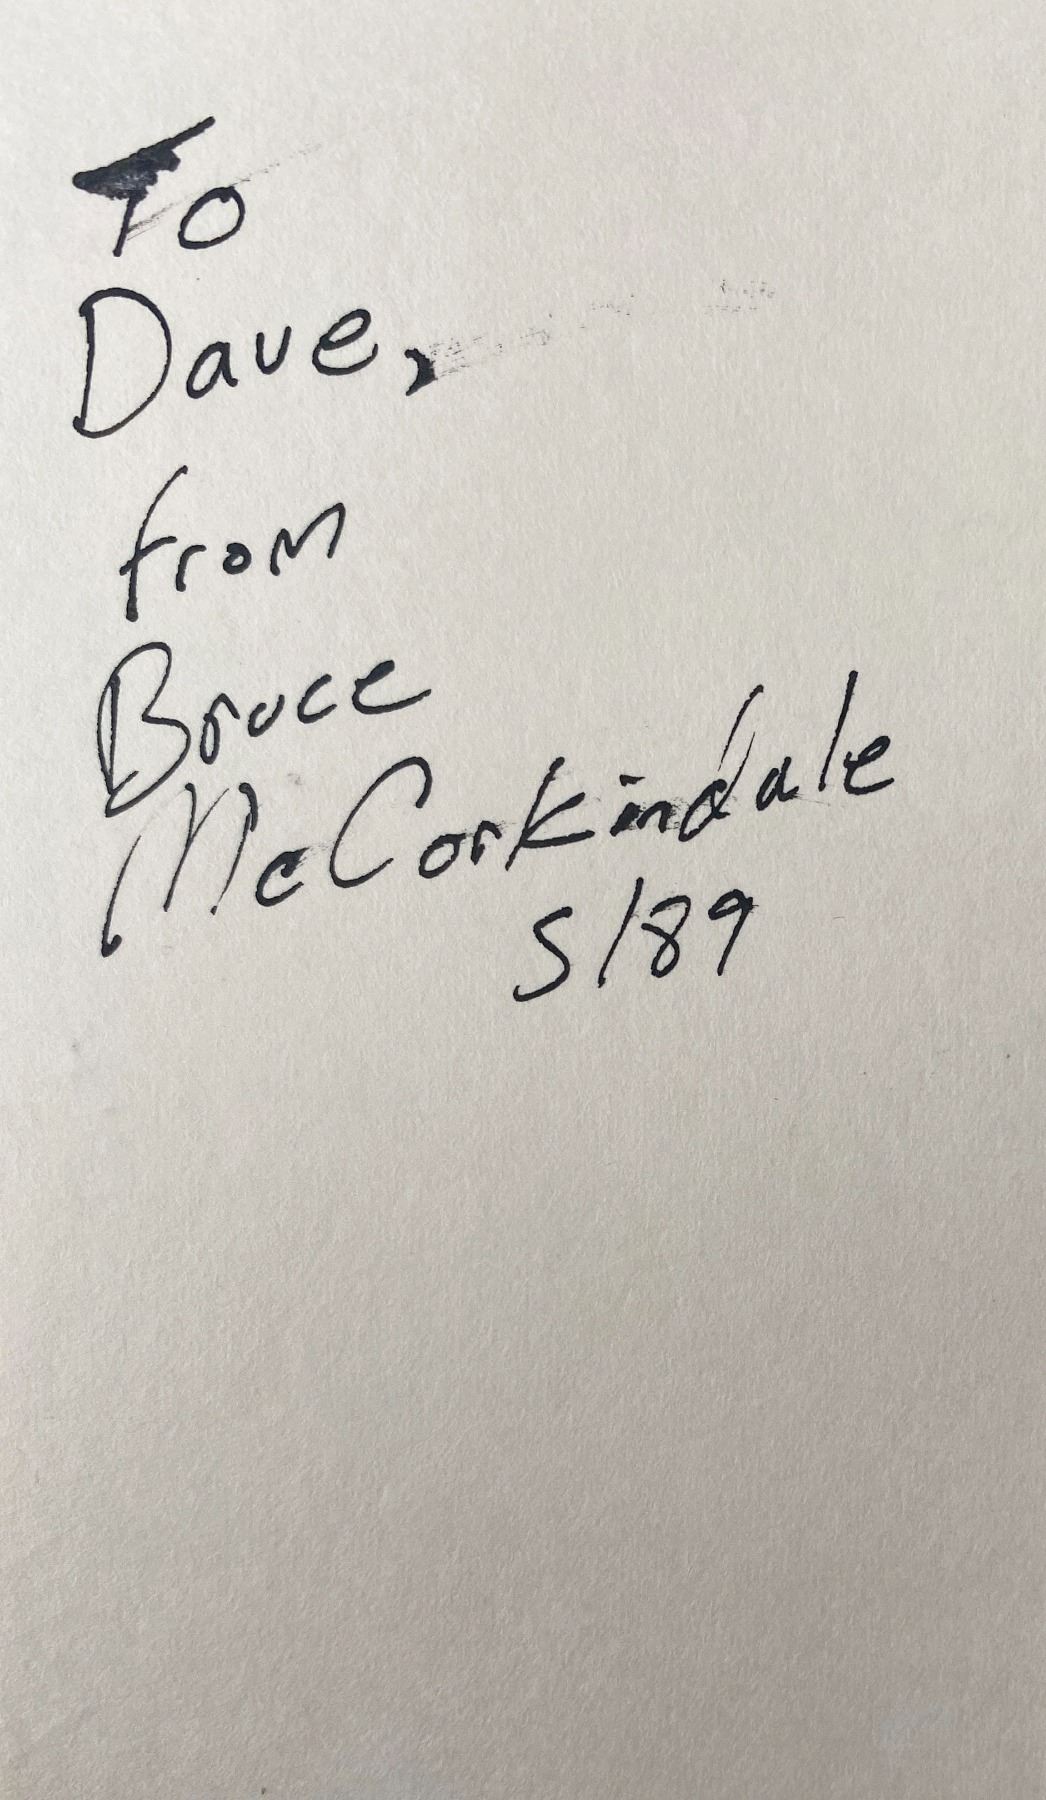 To
Dave,
from
Bruce
McCorkindale
5/89